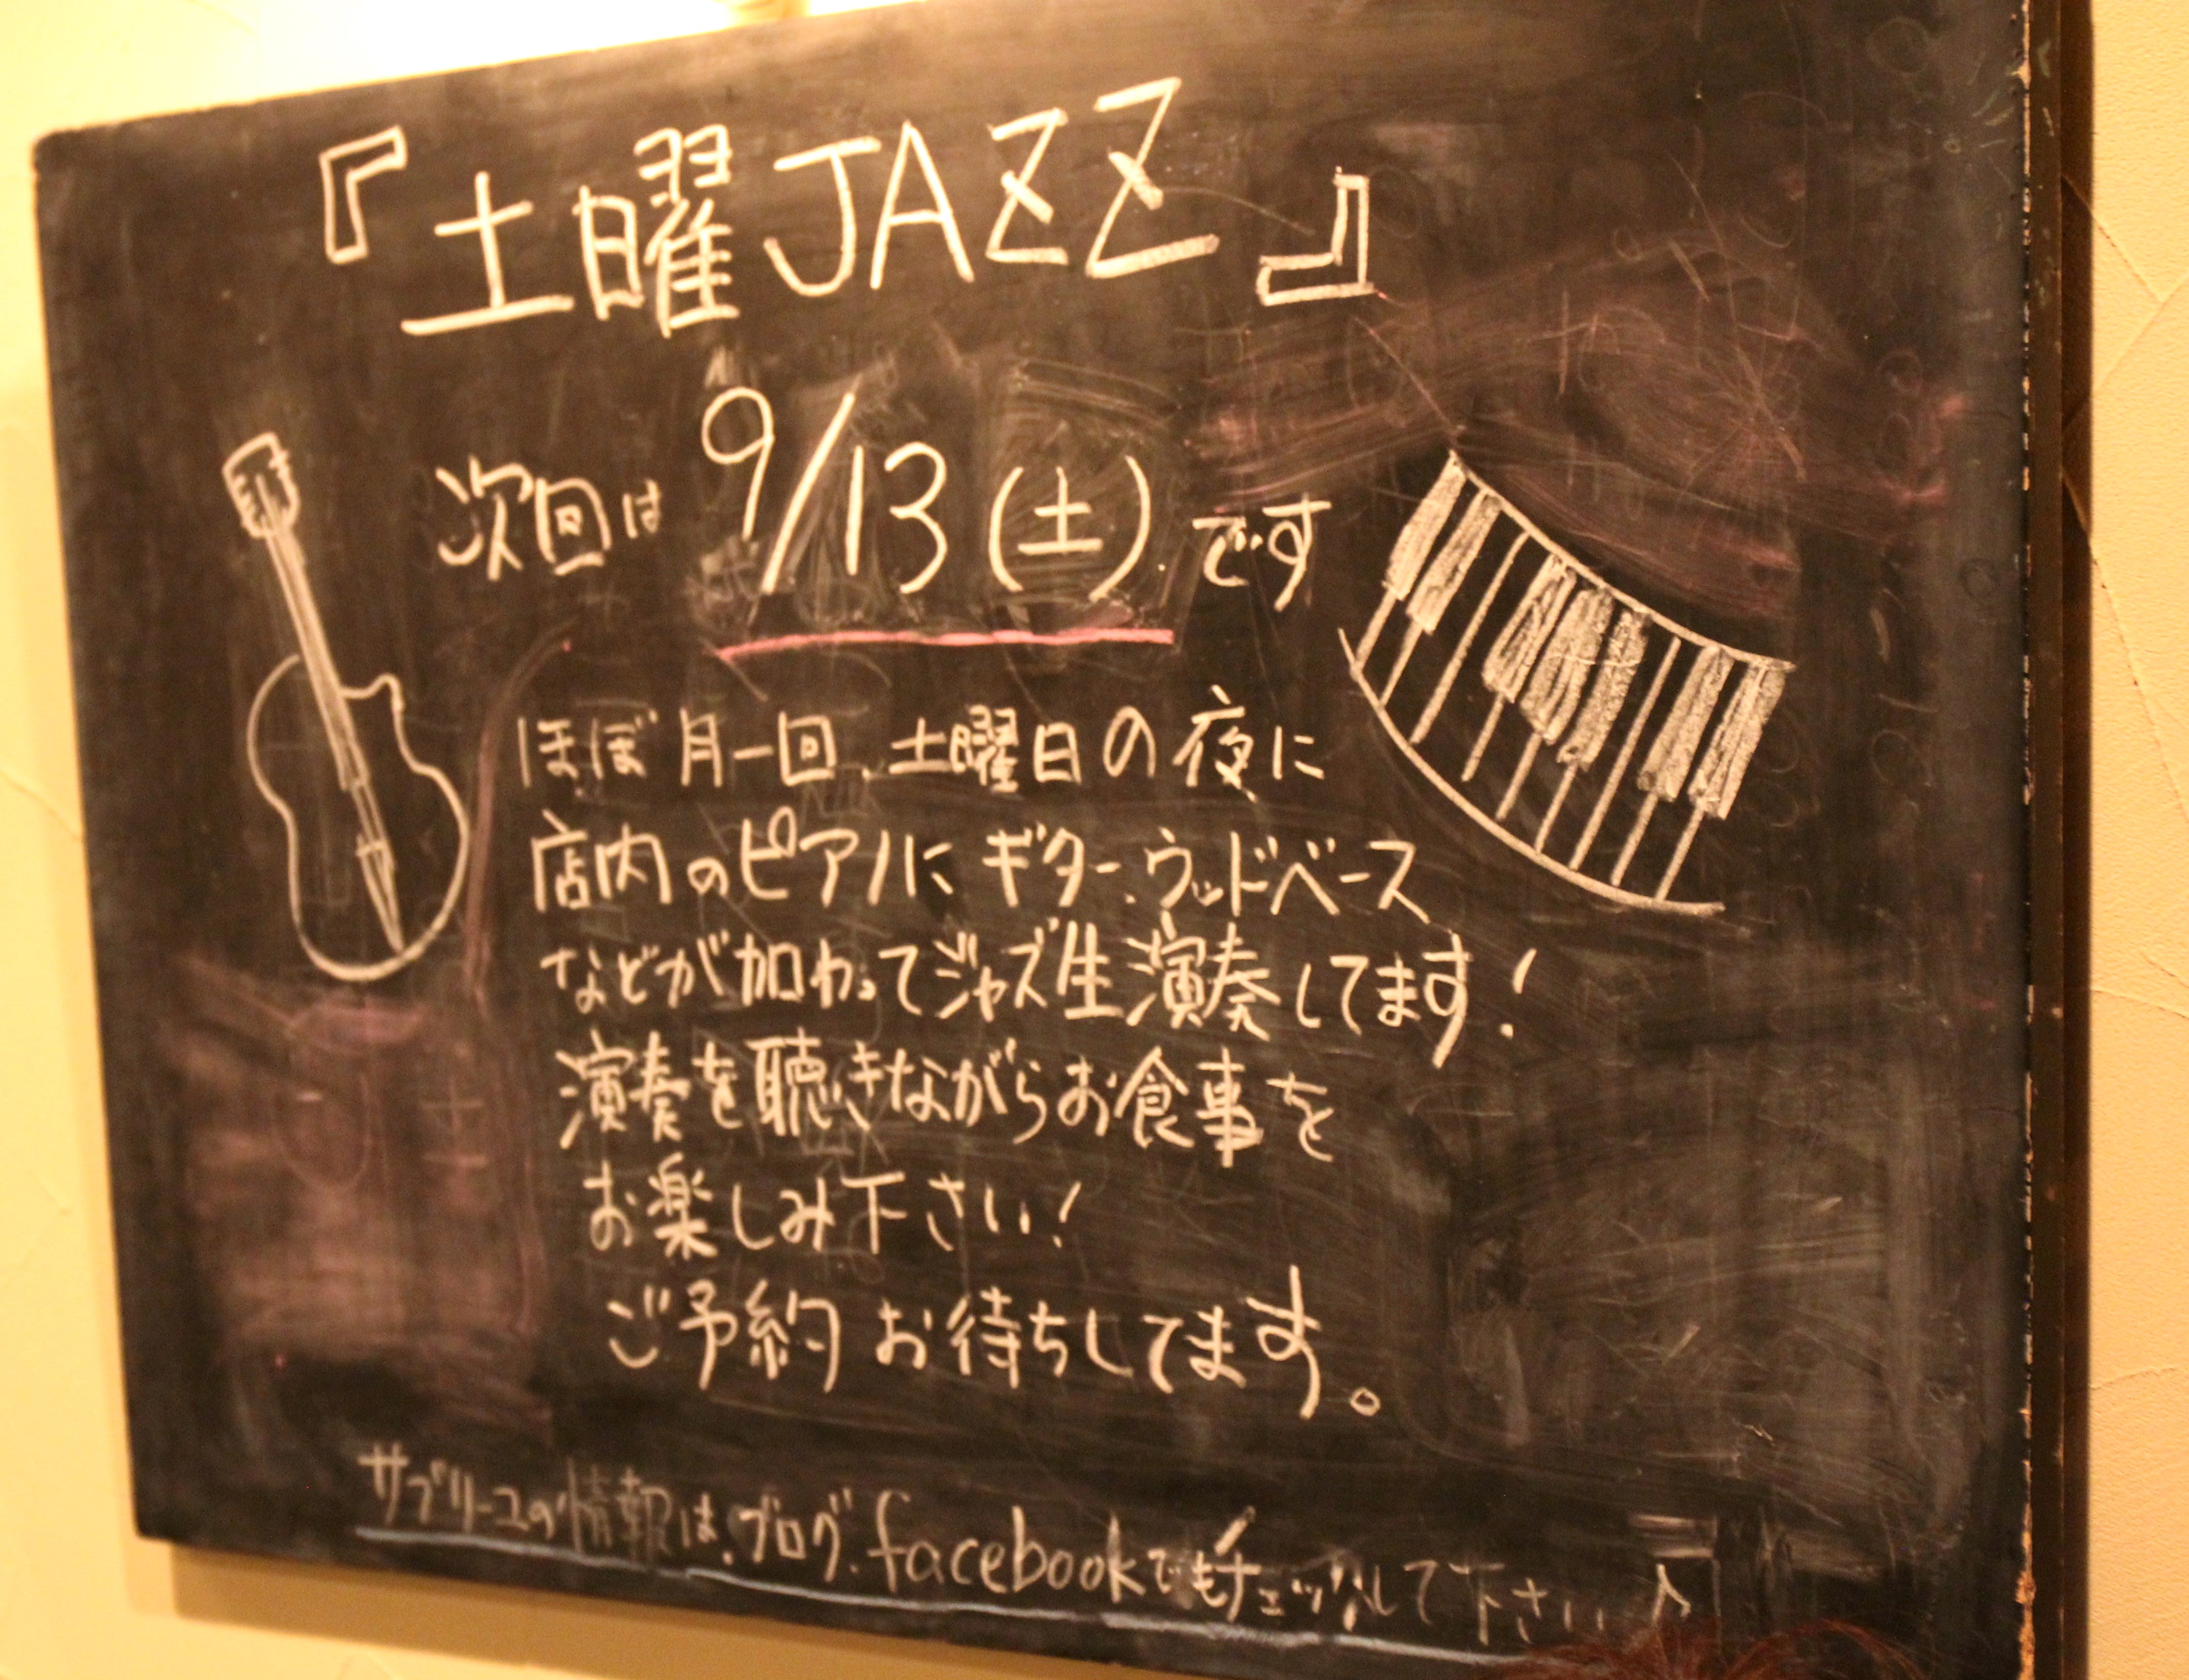 『土曜JAZZ』
次回は 9/13(土)です
ほぼ月一回、土曜日の夜に
店内のピアノにギター、ウッドベース
などが加わってジャズ生演奏してます!
演奏を聴きながらお食事を
お楽しみ下さい!
ご予約お待ちしてます。
サブリーユの情報は、ブログ、facebookでもチェックして下さい♪